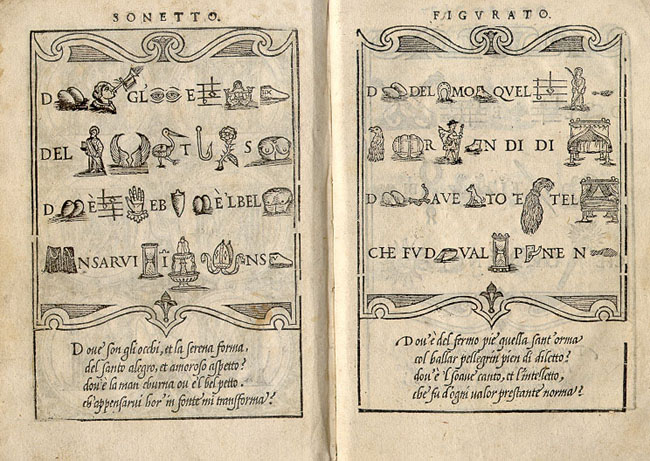 SONETTO.
D GL' E
DEL T S
D È EB È 'LBEL
NSARVI I NS
Dove son gli occhi, et la serena forma,
del santo alegro, et amoroso aspetto?
dov'è la man eburna ov'è'l bel petto.
ch'appensarvi hor' in fonte mi transforma?
FIGVRATO.
D DEL MO QVEL
R N DI DI
D AVE TO E TEL
CHE FV D VAL P NTE N
Dov'è del fermo piè quella sant'orma
col ballar pellegrin pien di diletto?
dov'è l'soave canto, et l'intelletto,
che fu d'ogni valor prestante norma?